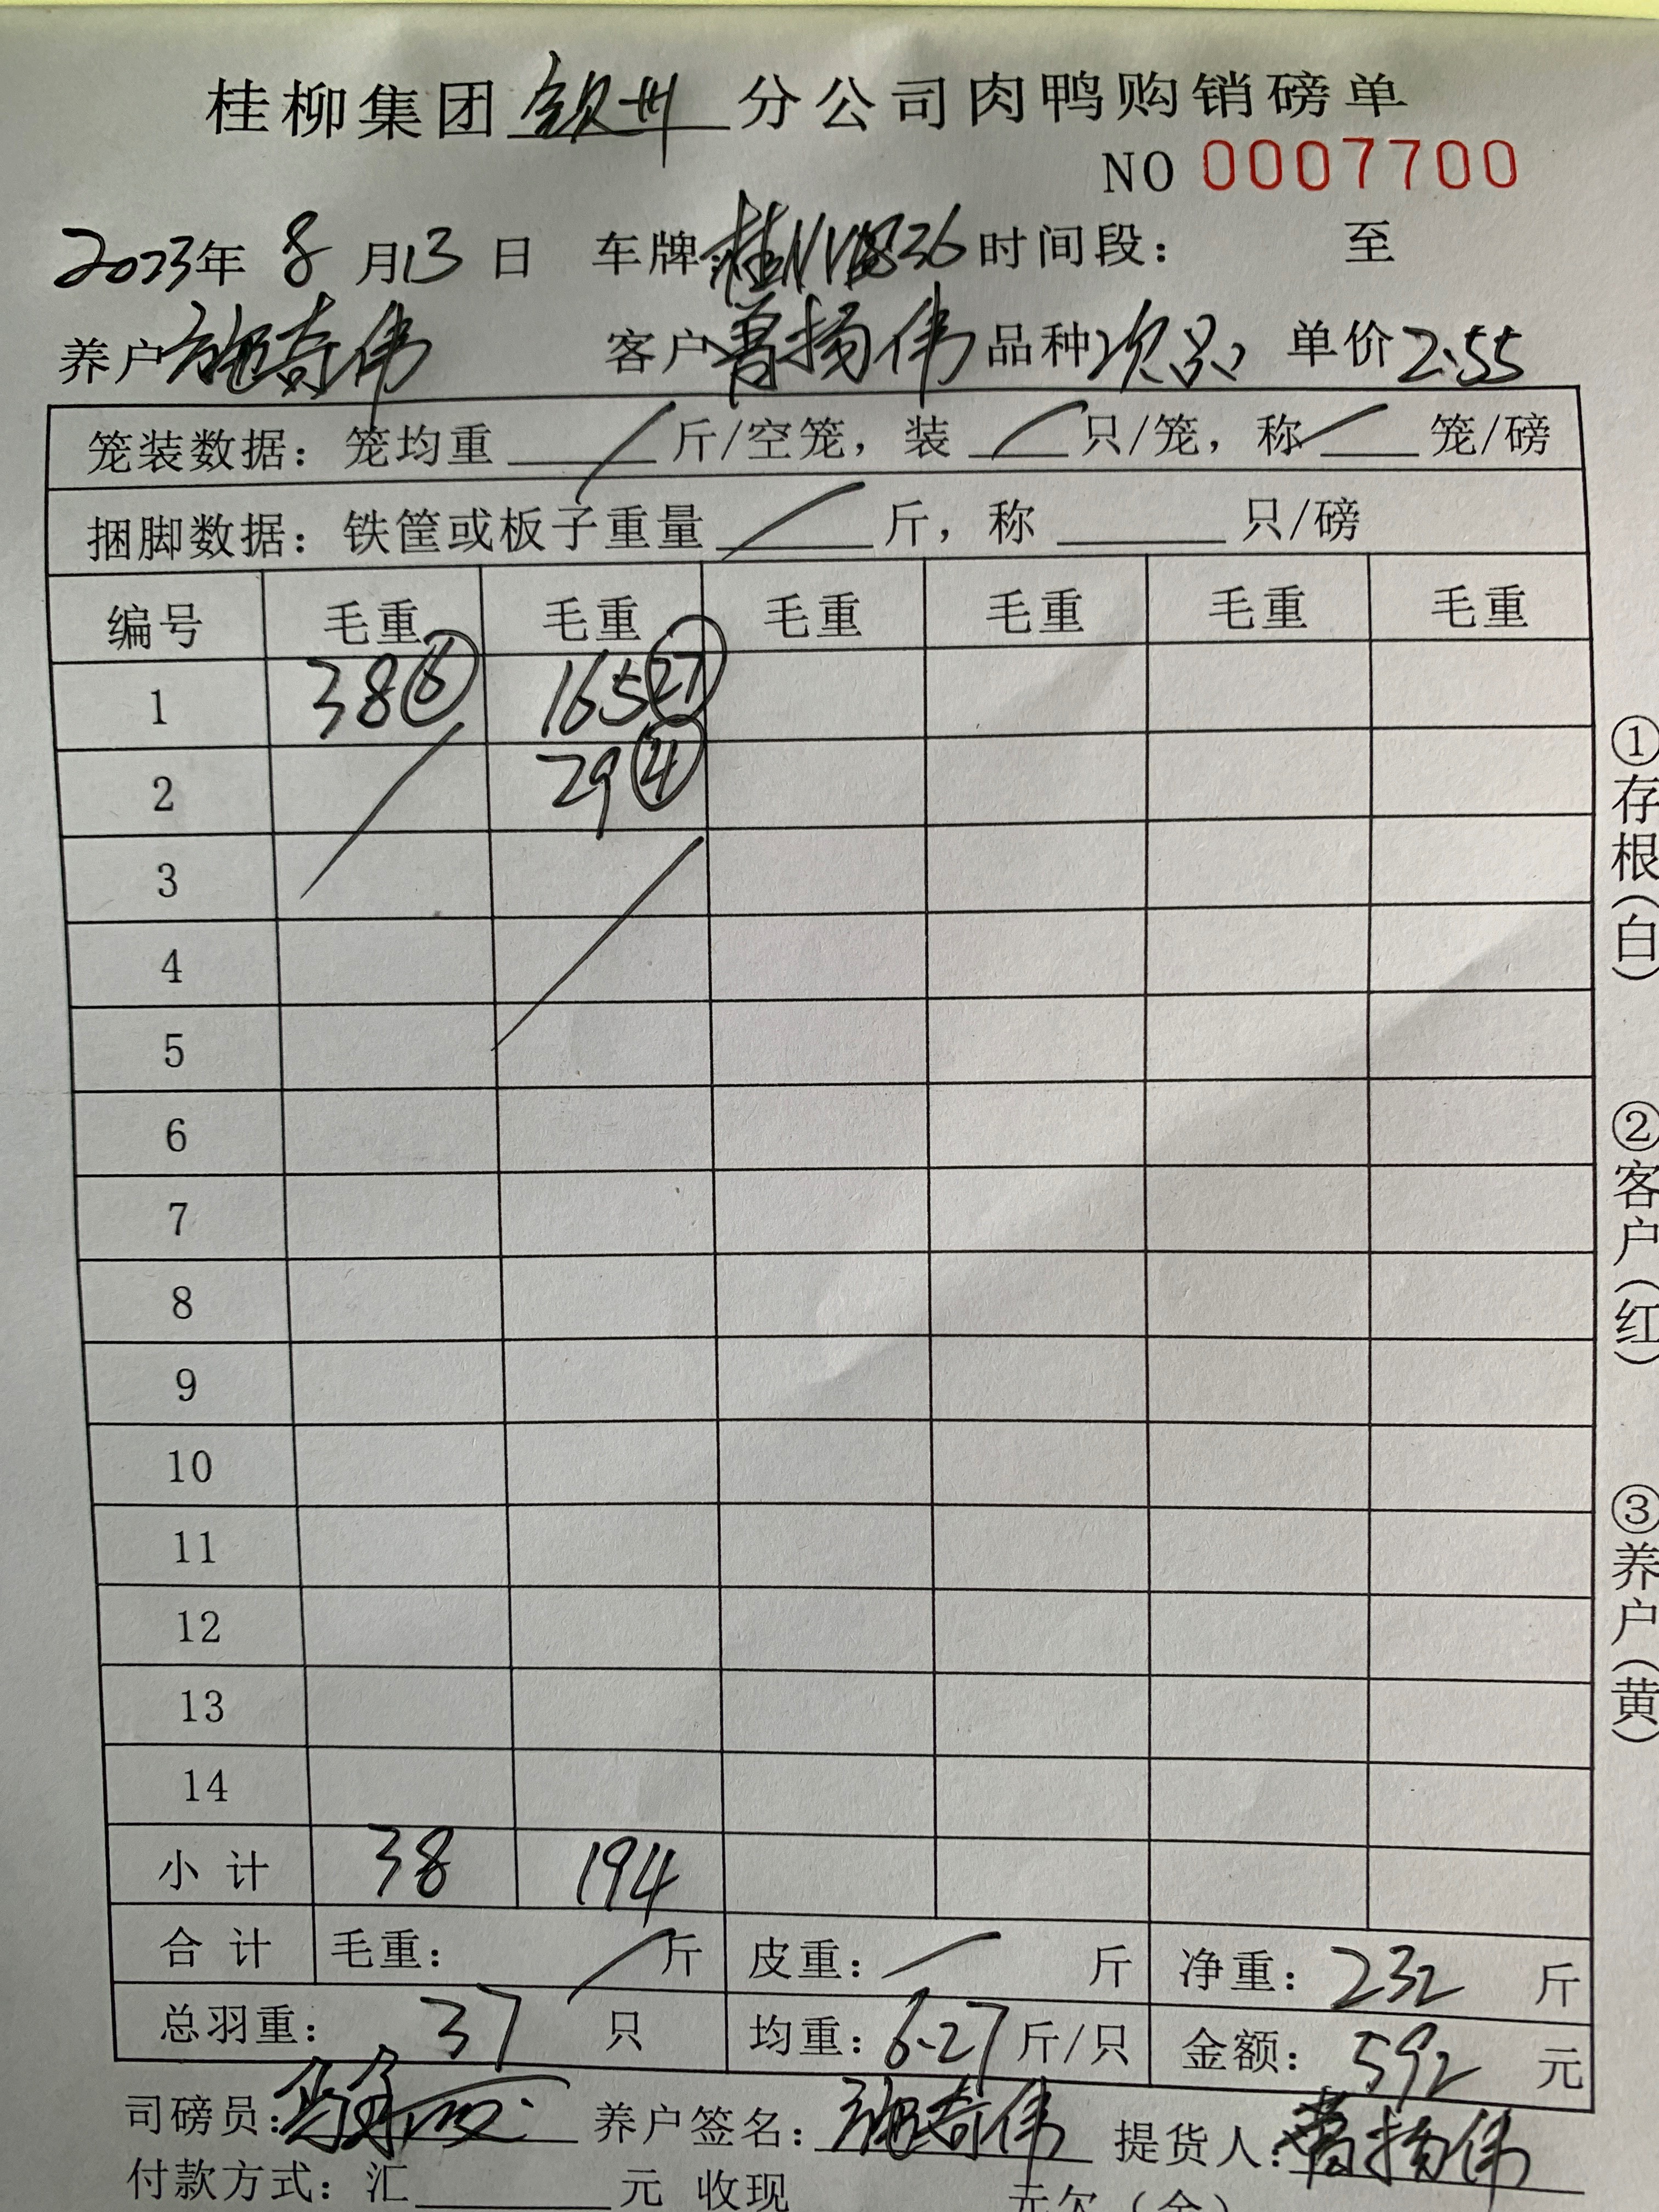 桂柳集团 钦州 分公司肉鸭购销磅单
NO 0007700
2023年 8 月13 日 车牌:桂N 836 时间段: 至
养户 施奇伟 客户 曾扬伟 品种 次品 单价 2.55
笼装数据:笼均重 / 斤/空笼,装 / 只/笼,称 / 笼/磅
捆脚数据:铁筐或板子重量 / 斤,称 只/磅
编号 毛重 毛重 毛重 毛重 毛重 毛重
1 38 ⑥ 165 ㉗
2 29 ④
3
4
5
6
7
8
9
10
11
12
13
14
小计 38 194
合计 毛重: / 斤 皮重: / 斤 净重: 232 斤
总羽重: 37 只 均重: 6.27 斤/只 金额: 592 元
司磅员: 养户签名: 施奇伟 提货人: 曾扬伟
付款方式:汇 元 收现 元欠(余)
①存根(白)
②客户(红)
③养户(黄)